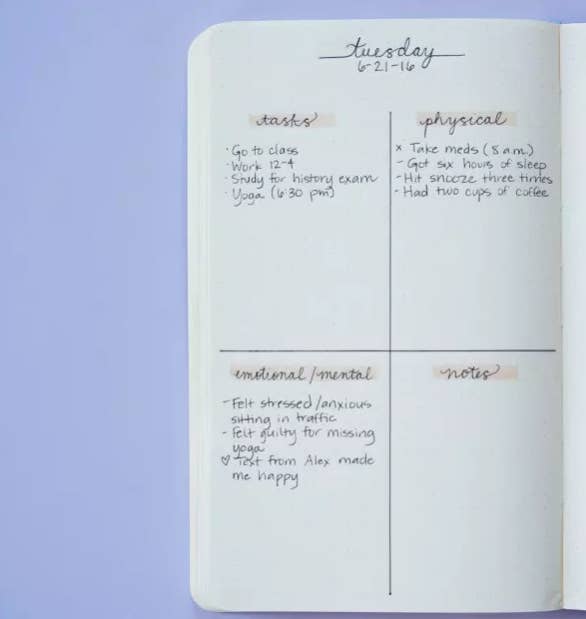 tuesday
6-21-16
tasks
· Go to class
· Work 12-4
· Study for history exam
· Yoga (6:30 pm)
physical
x Take meds (8 a.m.)
- Got six hours of sleep
- Hit snooze three times
- Had two cups of coffee
emotional/mental
- Felt stressed/anxious
sitting in traffic
- Felt guilty for missing
yoga
♡ Text from Alex made
me happy
notes